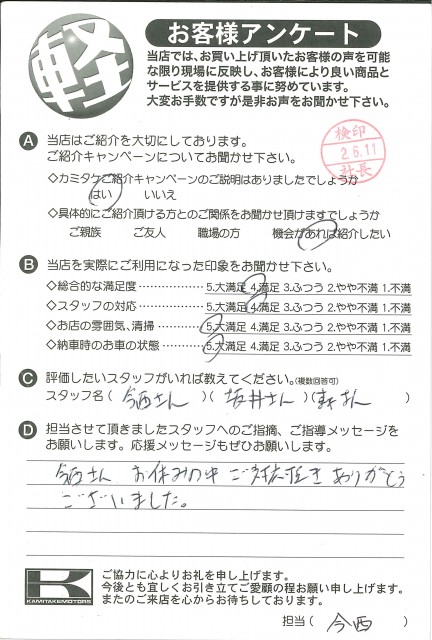 軽
お客様アンケート
当店では、お買い上げ頂いたお客様の声を可能
な限り現場に反映し、お客様により良い商品と
サービスを提供する事に努めています。
大変お手数ですが是非お声をお聞かせ下さい。
A 当店はご紹介を大切にしております。
ご紹介キャンペーンについてお聞かせ下さい。
検印
2.6.11
社長
◇カミタケご紹介キャンペーンのご説明はありましたでしょうか
はい いいえ
◇具体的にご紹介頂ける方とのご関係をお聞かせ頂けますでしょうか
ご親族 ご友人 職場の方 機会があれば紹介したい
B 当店を実際にご利用になった印象をお聞かせ下さい。
◇総合的な満足度 5.大満足 4.満足 3.ふつう 2.やや不満 1.不満
◇スタッフの対応 5.大満足 4.満足 3.ふつう 2.やや不満 1.不満
◇お店の雰囲気、清掃 5.大満足 4.満足 3.ふつう 2.やや不満 1.不満
◇納車時のお車の状態 5.大満足 4.満足 3.ふつう 2.やや不満 1.不満
C 評価したいスタッフがいれば教えてください。(複数回答可)
スタッフ名( 今西さん )( 坂井さん )( )
D 担当させて頂きましたスタッフへのご指摘、ご指導メッセージを
お願いします。応援メッセージもぜひお願いします。
今西さん お休みの中 ご対応頂き ありがとう
ございました。
K
KAMITAKEMOTORS
ご協力に心よりお礼を申し上げます。
今後とも宜しくお引き立てご愛顧の程お願い申し上げます。
またのご来店を心からお待ちしております。
担当( 今西 )